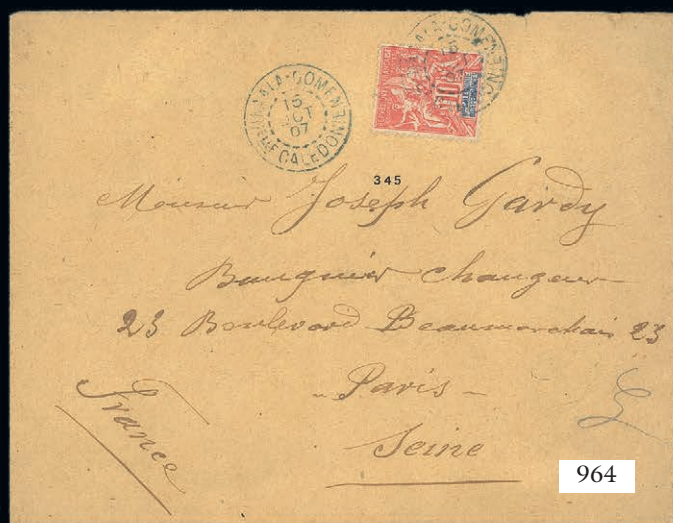 OUALALA-GOMEN
15
OCT
07
NLLE CALEDONIE
10
345
Monsieur Joseph Gardy
Banquier Changeur
23 Boulevard Beaumarchais 23
Paris -
Seine
France
964